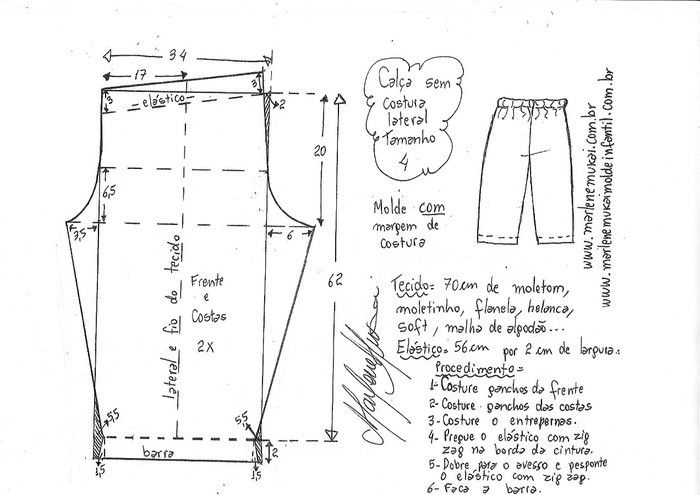 34
17
3
3
elástico
2
20
6,5
3,5
6
62
lateral e fio do tecido
Frente
e
Costas
2X
5,5
5,5
barra
2
1,5
1,5
Calça sem
costura
lateral
Tamanho
4
Molde com
margem de
costura
www.marlenemukai.com.br
www.marlenemukaimoldeinfantil.com.br
Marlene Mukai
Tecido= 70cm de moletom,
moletinho, flanela, helanca,
soft, malha de algodão...
Elástico= 56cm por 2cm de largura.
Procedimento=
1- Costure ganchos da frente
2- Costure ganchos das costas
3- Costure o entrepernas.
4- Pregue o elástico com zig
zag na borda da cintura.
5- Dobre para o avesso e pesponte
o elástico com zig zag.
6- Faça a barra.